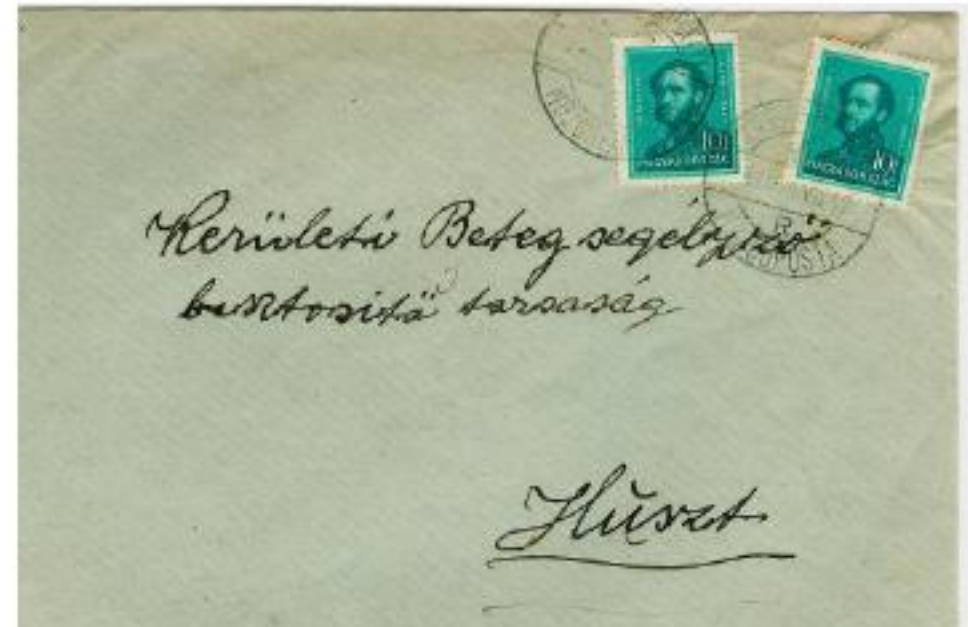 10f
MAGYARORSZÁG
10f
MAGYARORSZÁG
Kerületi Beteg segélyző
bisztositó tarsaság
Huszt